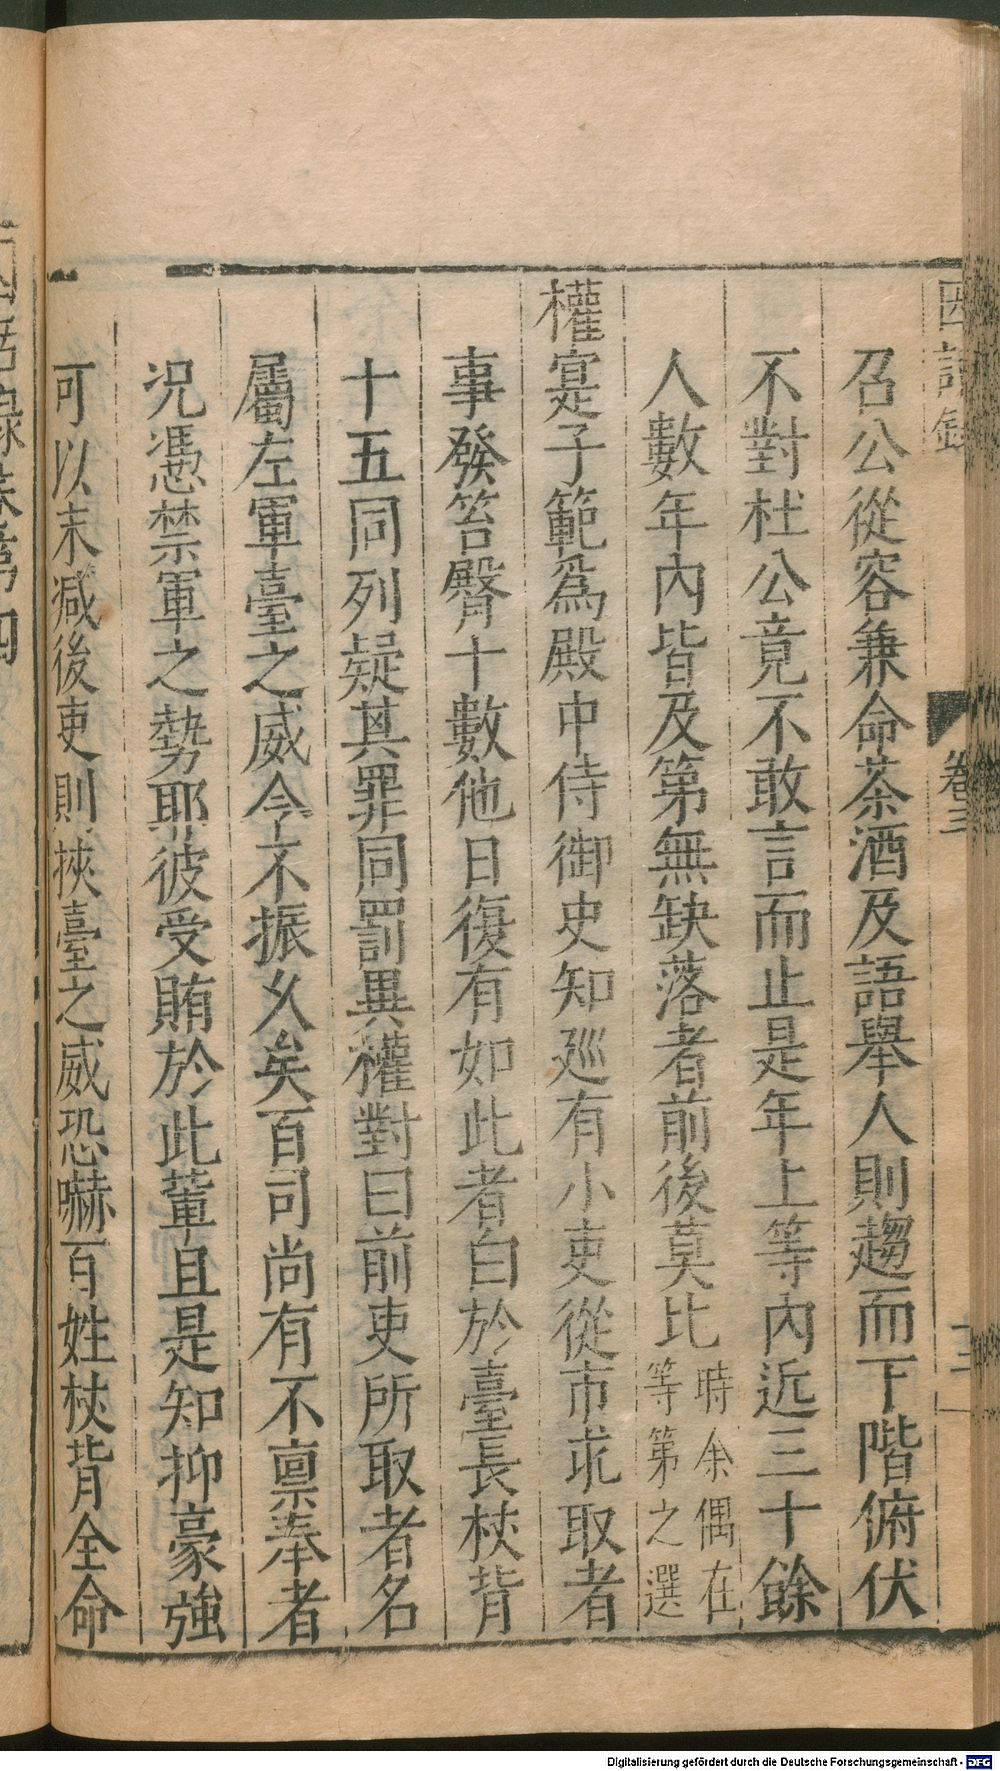 因話錄
卷三
召公從容兼命茶酒及語舉人則趨而下階俯伏
不對杜公竟不敢言而止是年上等內近三十餘
人數年內皆及第無缺落者前後莫比時余偶在等第之選
權寔子範爲殿中侍御史知巡有小吏從市求取者
事發笞臀十數他日復有如此者白於臺長杖背
十五同列疑其罪同罰異權對曰前吏所取者名
屬左軍臺之威令不振久矣百司尚有不禀奉者
况憑禁軍之勢耶彼受賄於此輩且是知抑豪強
可以末减後吏則挾臺之威恐嚇百姓杖背全命
Digitalisierung gefördert durch die Deutsche Forschungsgemeinschaft - DFG